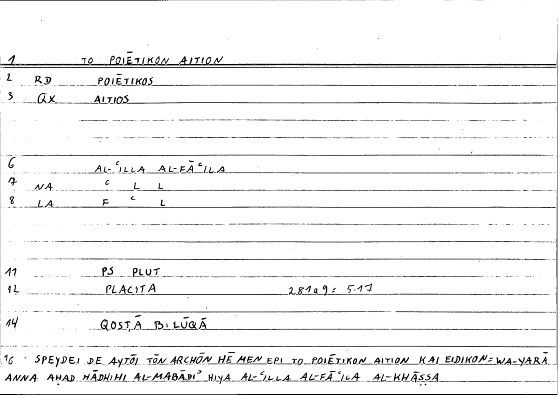 1 TO POIĒTIKON AITION
2 RD POIĒTIKOS
3 QX AITIOS
6 AL-ʿILLA AL-FĀʿILA
7 NA ʿ L L
8 LA F ʿ L
11 PS PLUT
12 PLACITA 281a9 = 5.17
14 QOSṬĀ B. LŪQĀ
16 SPEYDEI DE AYTŌI TŌN ARCHŌN HĒ MEN EPI TO POIĒTIKON AITION KAI EIDIKON = WA-YARĀ
ANNA AḤAD HĀDHIHI AL-MABĀDIʾ HIYA AL-ʿILLA AL-FĀʿILA AL-KHĀṢṢA